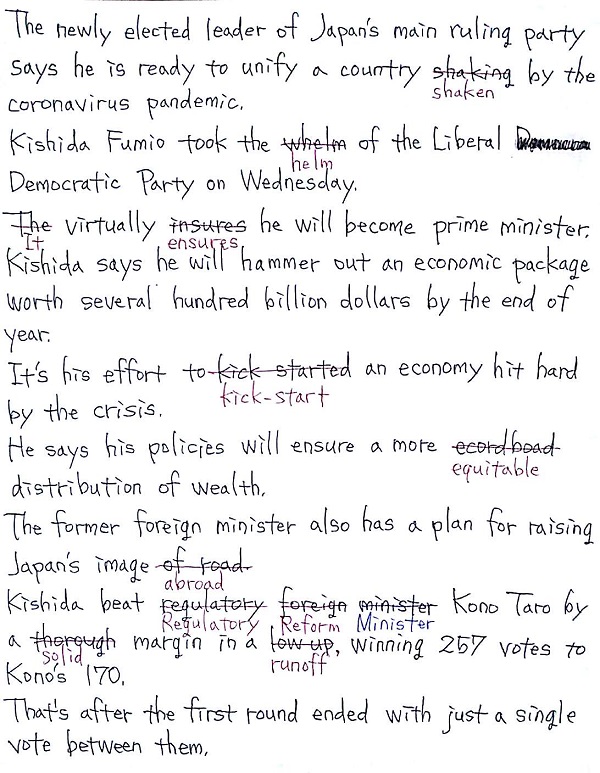 The newly elected leader of Japan's main ruling party
says he is ready to unify a country shaking by the
shaken
coronavirus pandemic.
Kishida Fumio took the whelm of the Liberal
helm
Democratic Party on Wednesday.
The virtually insures he will become prime minister.
It ensures
Kishida says he will hammer out an economic package
worth several hundred billion dollars by the end of
year.
It's his effort to kick started an economy hit hard
kick-start
by the crisis.
He says his policies will ensure a more ecordboad
equitable
distribution of wealth.
The former foreign minister also has a plan for raising
Japan's image of road
abroad
Kishida beat regulatory foreign minister Kono Taro by
Regulatory Reform Minister
a thorough margin in a low up, winning 257 votes to
solid runoff
Kono's 170.
That's after the first round ended with just a single
vote between them.